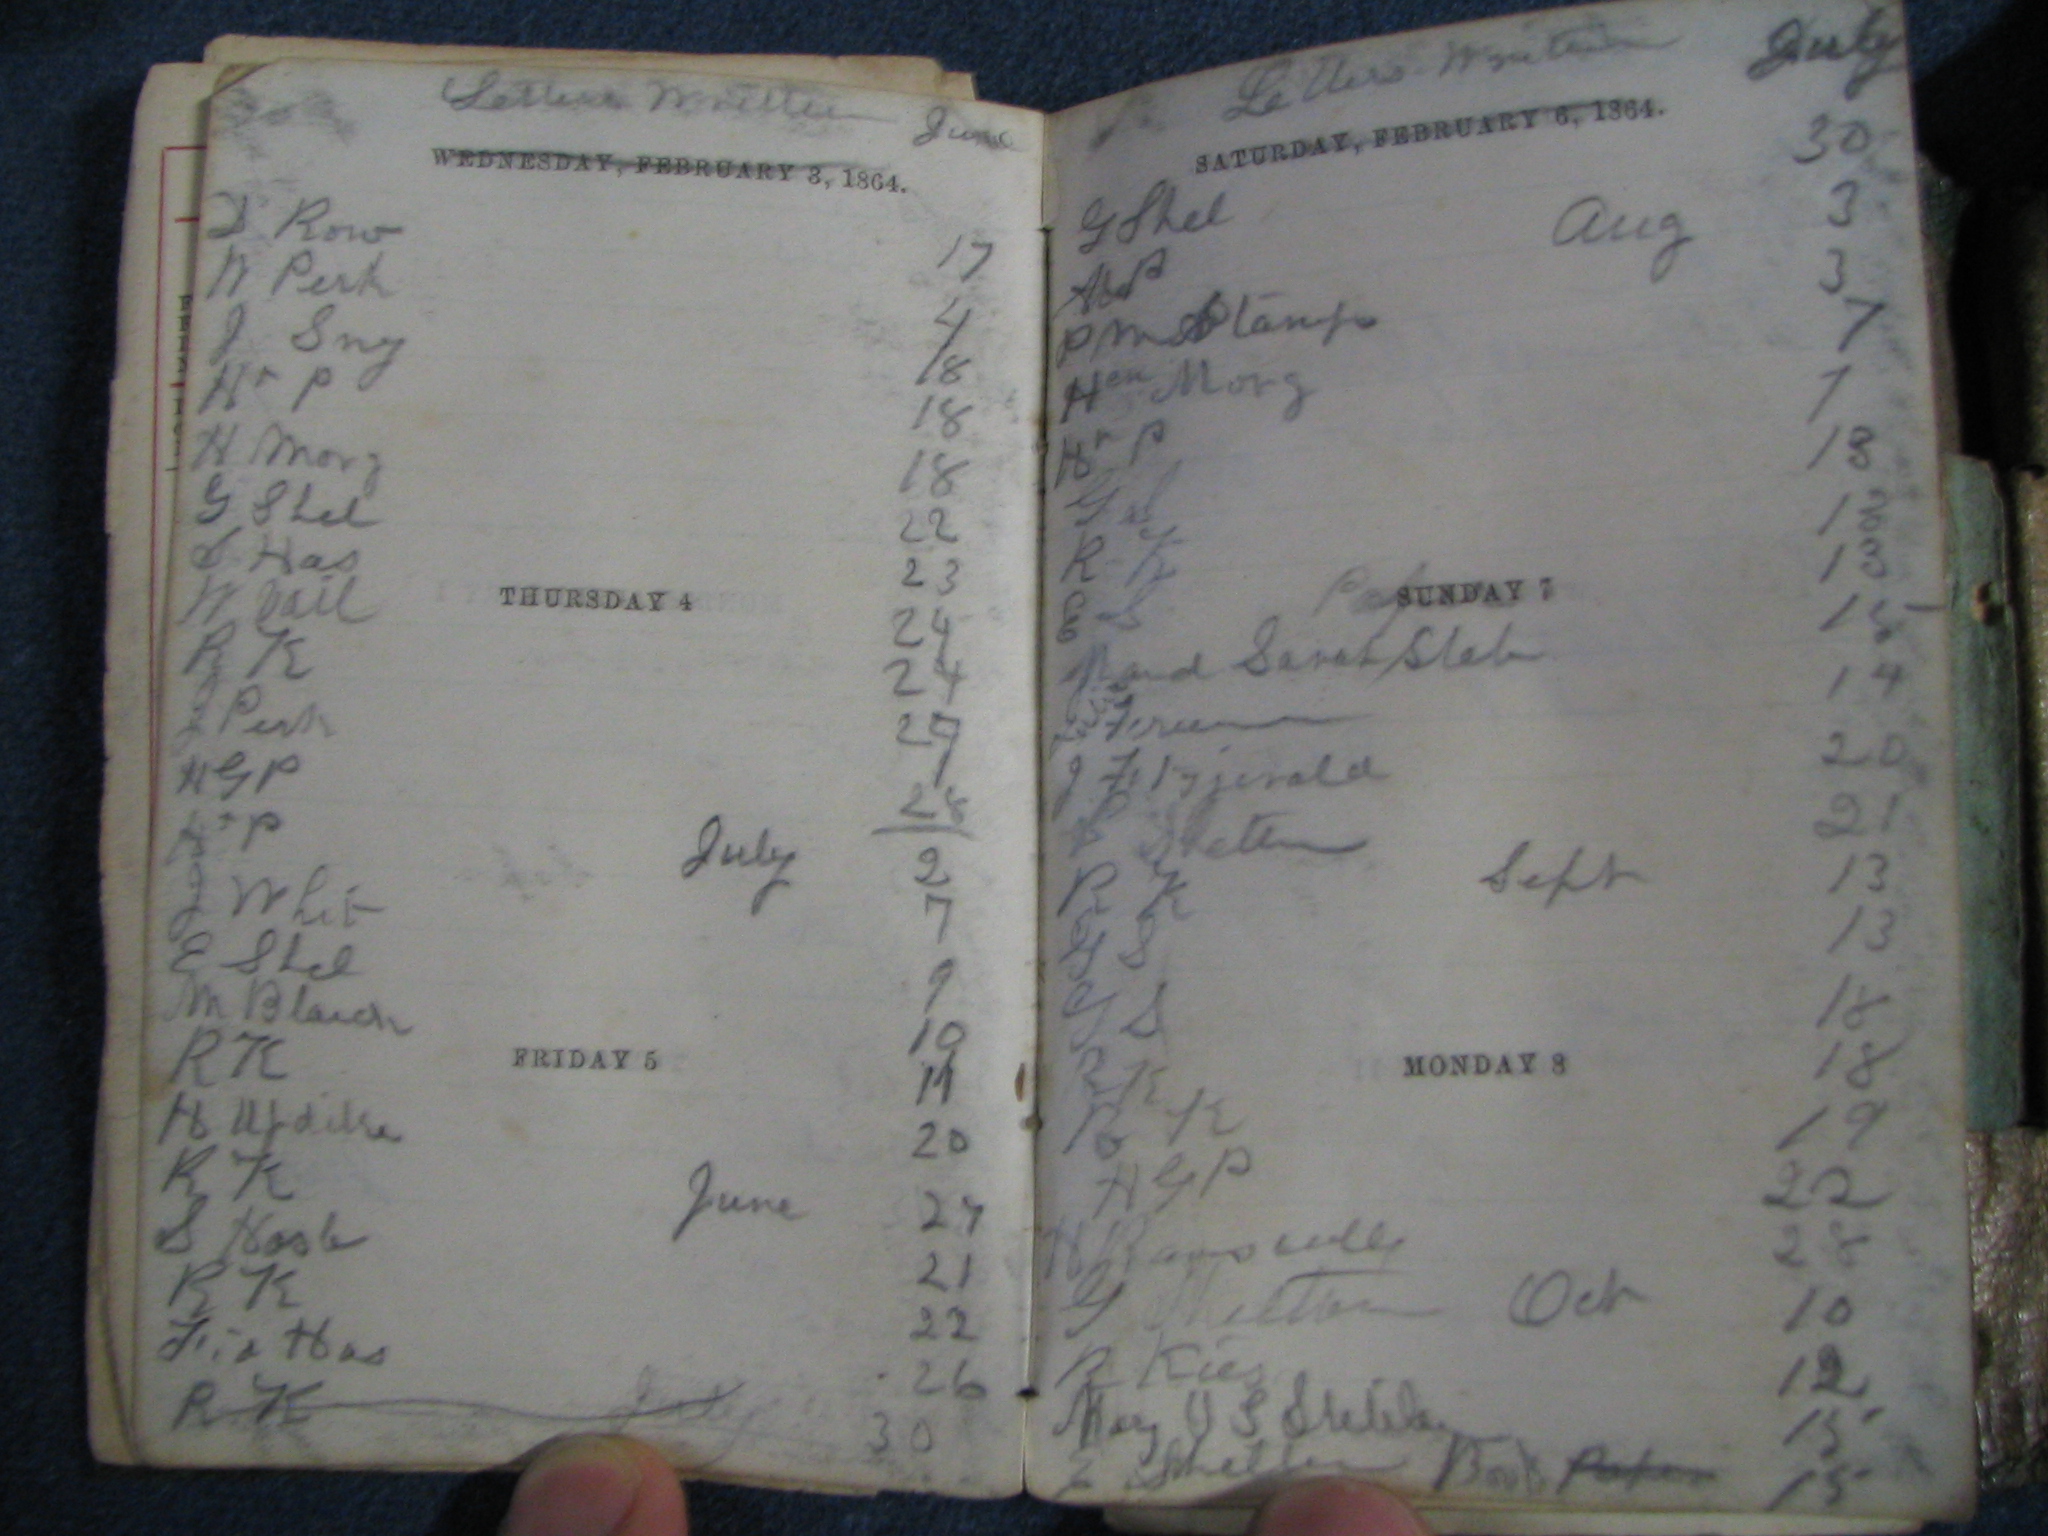 Letters Written June
WEDNESDAY, FEBRUARY 3, 1864.
D Row 17
W Perk 4
J Sny 18
Hr P 18
H Morg 18
G Shel 22
S Has 23
W Vail 24
THURSDAY 4
R K 24
Perk 27
H G P 28
r P July 2
J Whit 7
E Shel 9
M Blanch 10
R K 11
FRIDAY 5
H 20
R K June 27
S Hasb 21
R K 22
Has 26
R K July 30
Letters Written July
SATURDAY, FEBRUARY 6, 1864.
30
G Shel Aug 3
P M Stamps 3
Hen Morg 7
Hr P 7
G S 13
R K 13
E S 13
SUNDAY 7
and Sarah Sleb 15
14
J Fitzgerald 20
Shelton 21
R K Sept 13
G S 13
S 18
R K 18
MONDAY 8
R K 19
H G P 22
H 28
G Shelton Oct 10
R Kies 12
Mary U S 15
Shelton Book Paper 15